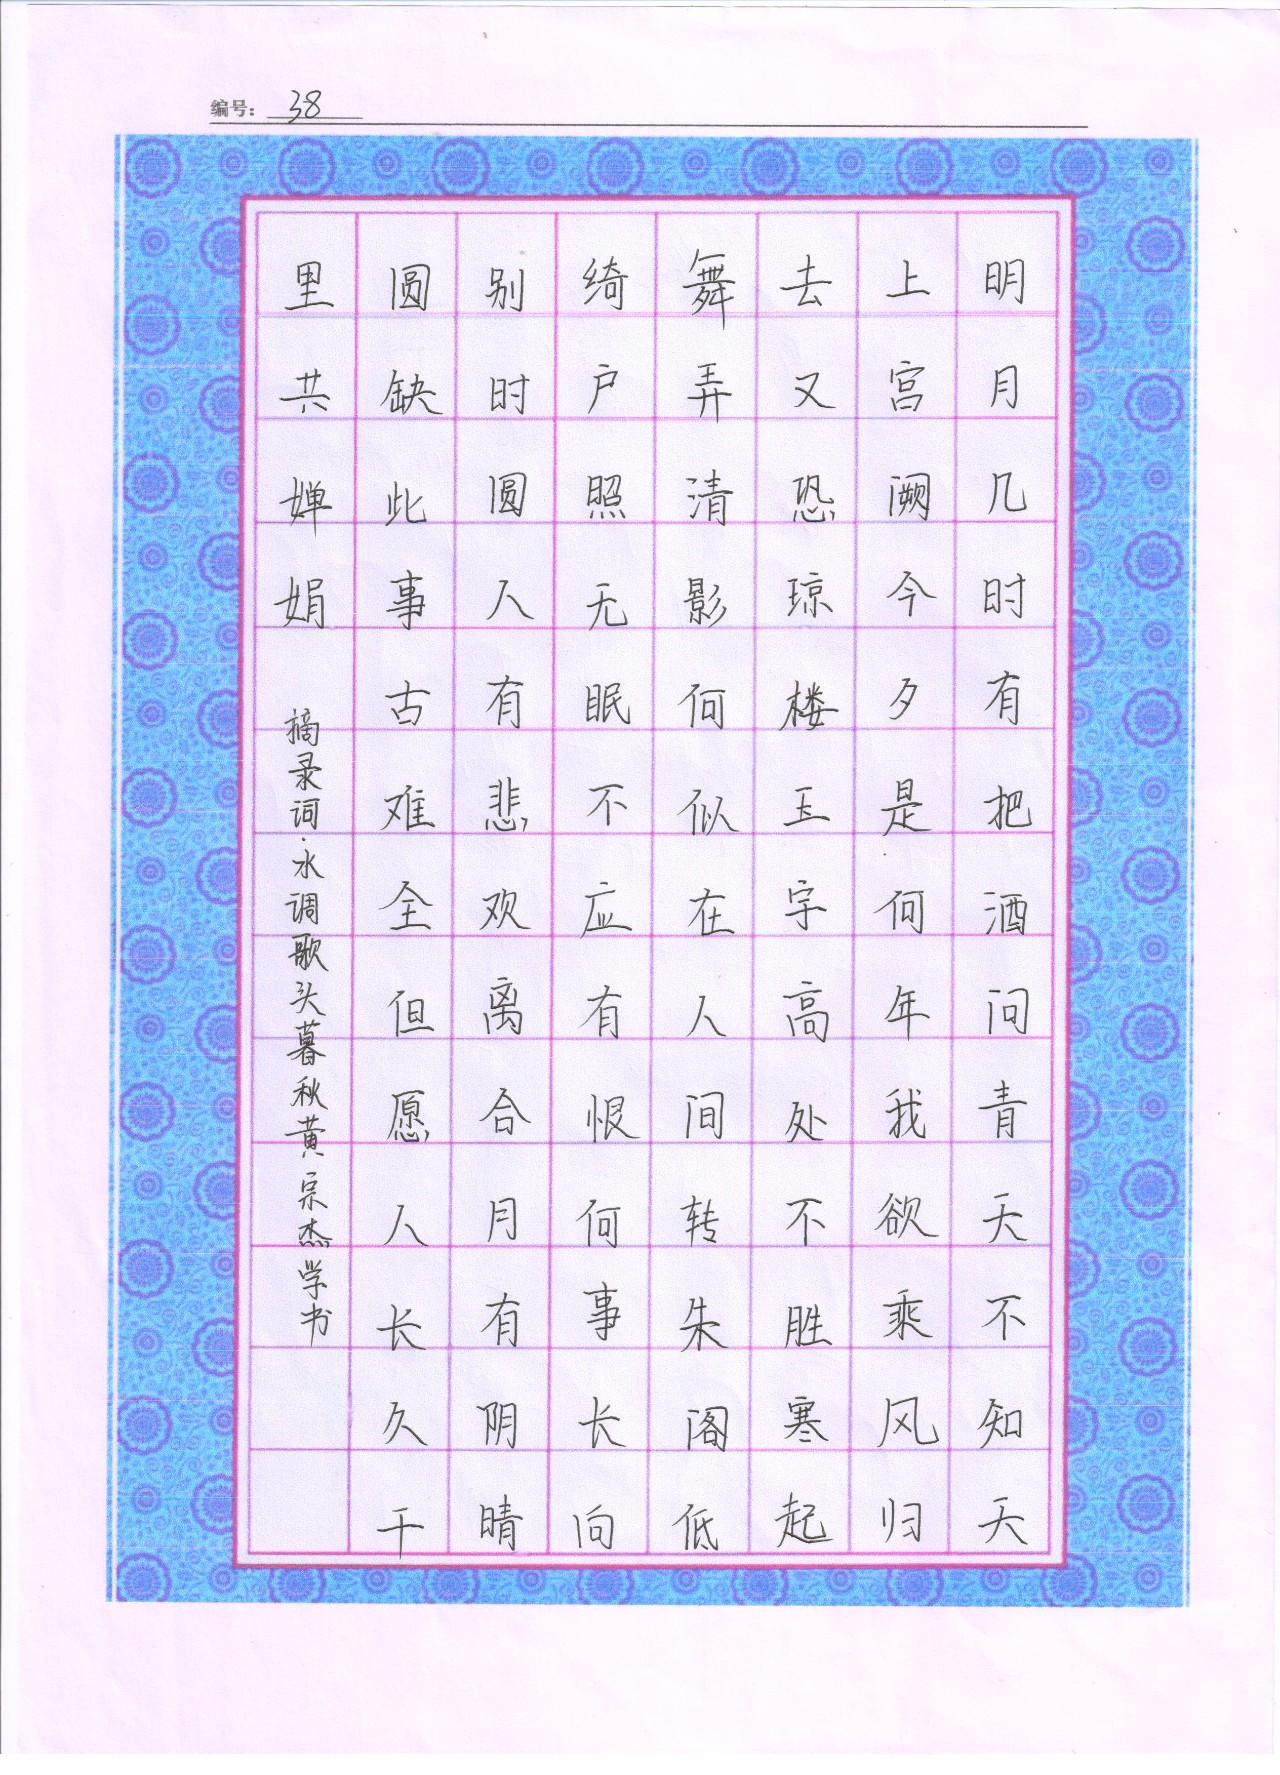 编号: 38
明月几时有把酒问青天不知天
上宫阙今夕是何年我欲乘风归
去又恐琼楼玉宇高处不胜寒起
舞弄清影何似在人间转朱阁低
绮户照无眠不应有恨何事长向
别时圆人有悲欢离合月有阴晴
圆缺此事古难全但愿人长久千
里共婵娟
摘录词·水调歌头暮秋黄宗杰学书